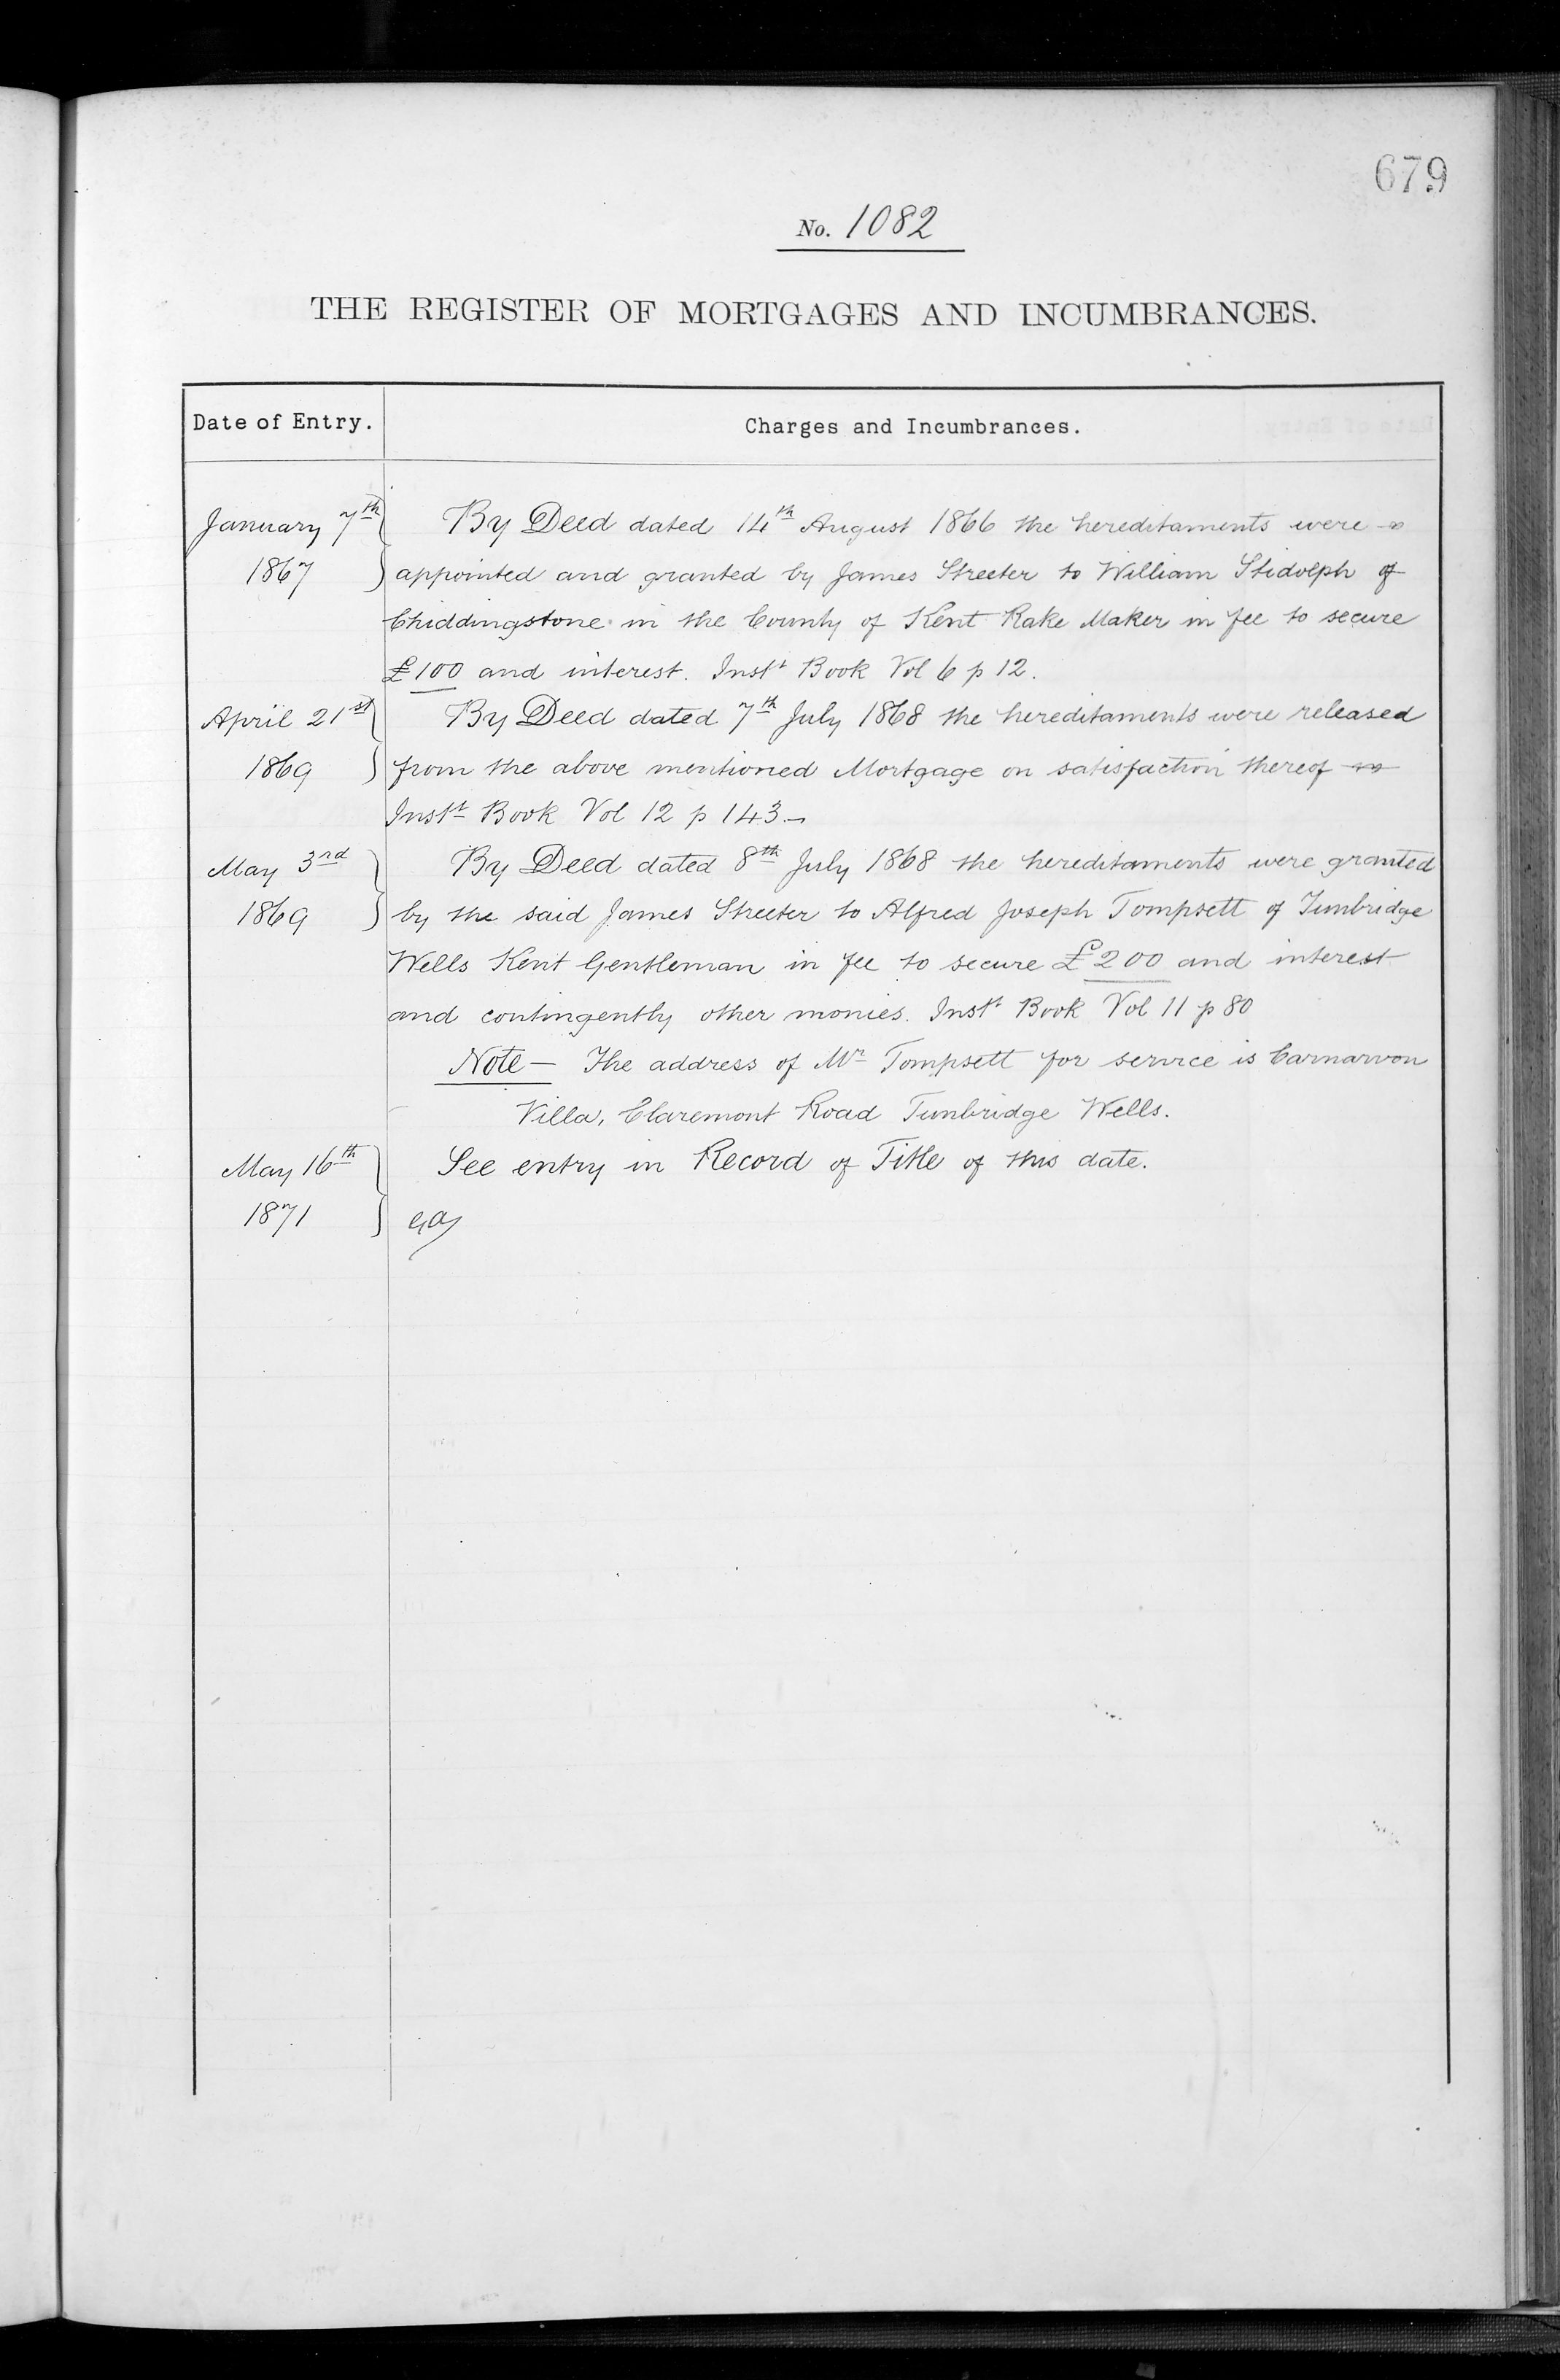 679
No. 1082
THE REGISTER OF MORTGAGES AND INCUMBRANCES.
Date of Entry.
Charges and Incumbrances.
January 7th
1867
By Deed dated 14th August 1866 the hereditaments were
appointed and granted by James Streeter to William Stidolph of
Chiddingstone in the County of Kent Rake Maker in fee to secure
£100 and interest. Instt Book Vol 6 p 12.
April 21st
1869
By Deed dated 7th July 1868 the hereditaments were released
from the above mentioned Mortgage on satisfaction thereof
Instt Book Vol 12 p 143.
May 3rd
1869
By Deed dated 8th July 1868 the hereditaments were granted
by the said James Streeter to Alfred Joseph Tompsett of Tunbridge
Wells Kent Gentleman in fee to secure £200 and interest
and contingently other monies. Instt Book Vol 11 p 80
Note — The address of Mr Tompsett for service is Carnarvon
Villa, Claremont Road Tunbridge Wells.
May 16th
1871
See entry in Record of Title of this date.